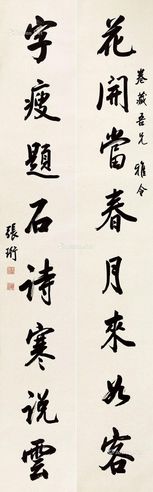 花開當春月來如客
卷藏吾兄 雅令
字瘦題石詩寒説雲
張珩